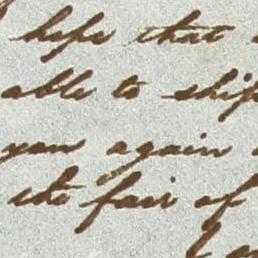 hope that
able to ship
you again
the fair of